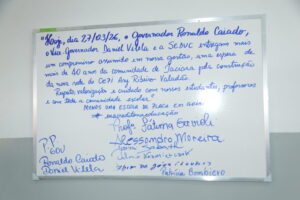 "Hoje, dia 27/03/26, o Governador Ronaldo Caiado, o
Vice Governador Daniel Vilela e a SEDUC entregam mais
um compromisso assumido em nossa gestão, uma espera de
mais de 40 anos da comunidade de Iaciara pela construção
da nova sede do CEPI Ary Ribeiro Valadão.
Respeito, valorização e cuidado com nossos estudantes, professores
e com toda a comunidade escolar."
MENOS UMA ESCOLA DE PLACA EM GOIÁS
Profa. Fátima Gavioli
Alessandro Moreira
P/P
GOV
Ronaldo Caiado
Daniel Vilela
Patrícia Bombeiro